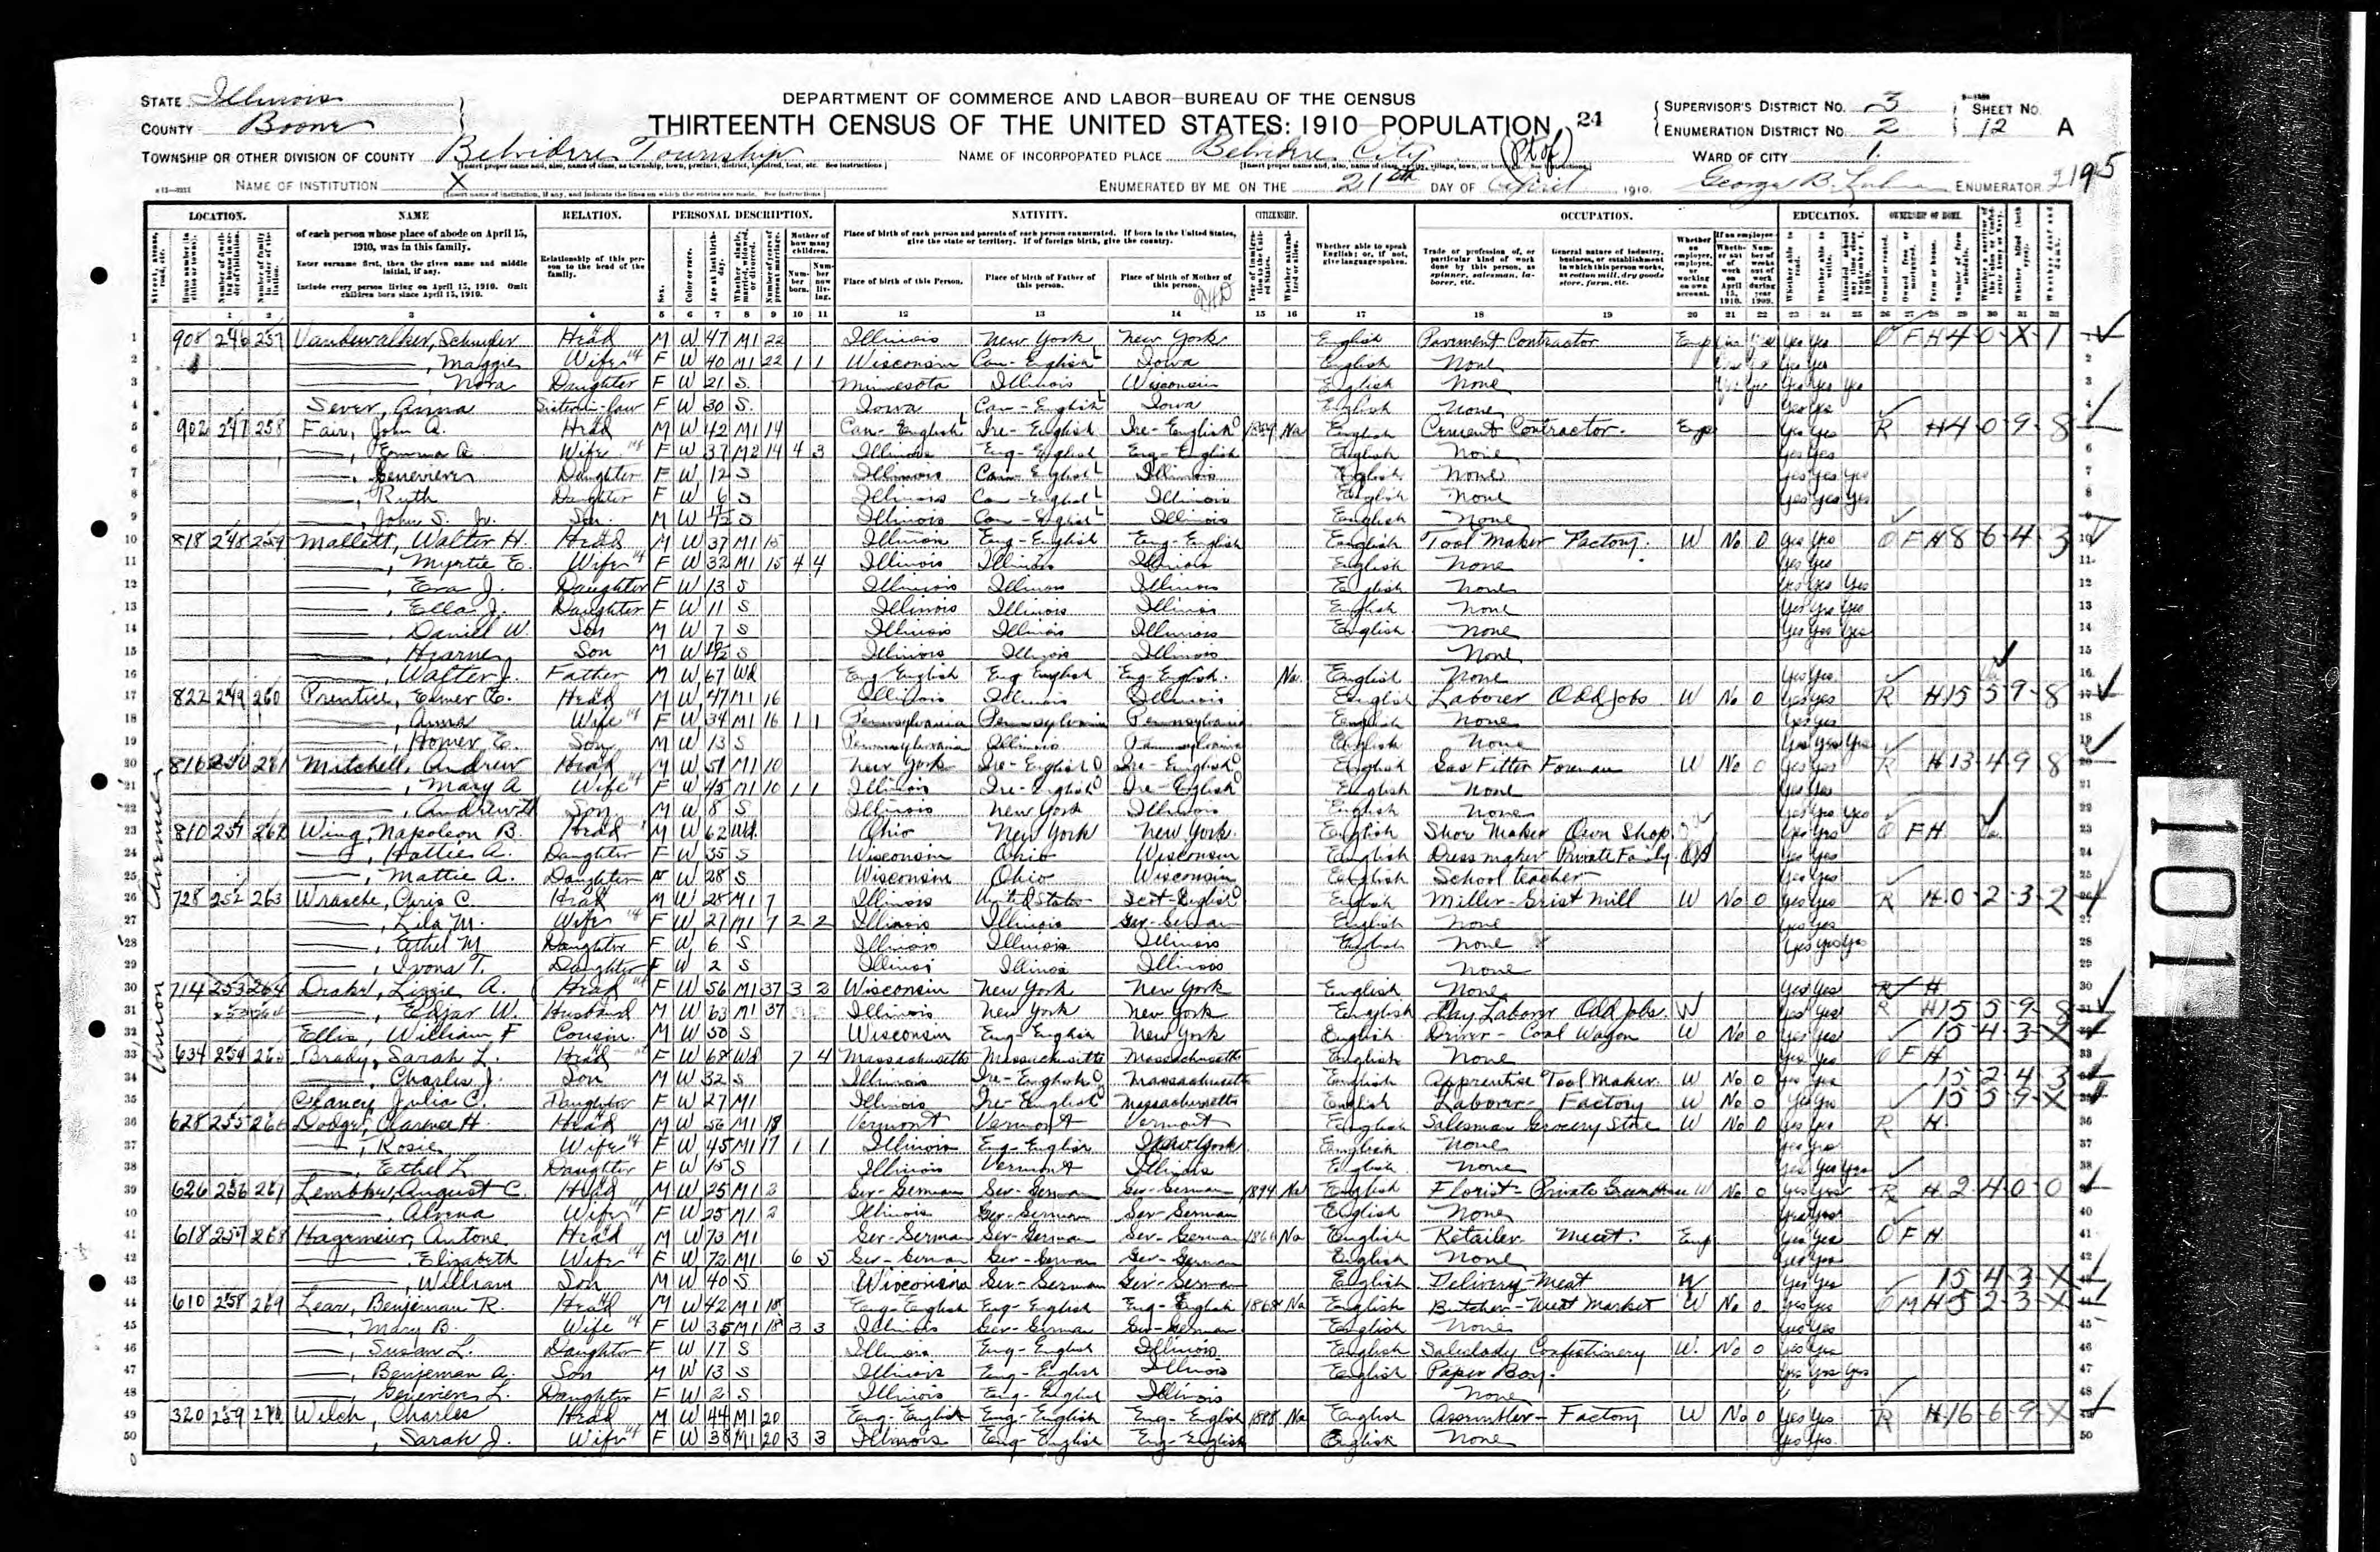 STATE Illinois
COUNTY Boone
DEPARTMENT OF COMMERCE AND LABOR—BUREAU OF THE CENSUS
THIRTEENTH CENSUS OF THE UNITED STATES: 1910—POPULATION
21
SUPERVISOR'S DISTRICT NO. 3
ENUMERATION DISTRICT NO. 2
SHEET NO. 12 A
TOWNSHIP OR OTHER DIVISION OF COUNTY Belvidere Township
NAME OF INCORPORATED PLACE Belvidere City (pt of)
WARD OF CITY 1.
NAME OF INSTITUTION X
ENUMERATED BY ME ON THE 21th DAY OF April 1910. George B. ENUMERATOR
2195
LOCATION. NAME RELATION. PERSONAL DESCRIPTION. NATIVITY. CITIZENSHIP. OCCUPATION. EDUCATION. OWNERSHIP OF HOME.
of each person whose place of abode on April 15, 1910, was in this family.
Enter surname first, then the given name and middle initial, if any.
Include every person living on April 15, 1910. Omit children born since April 15, 1910.
Relationship of this person to the head of the family.
Place of birth of each person and parents of each person enumerated. If born in the United States, give the state or territory. If of foreign birth, give the country.
Place of birth of this Person. Place of birth of Father of this person. Place of birth of Mother of this person.
Whether able to speak English; or, if not, give language spoken.
Trade or profession of, or particular kind of work done by this person, as spinner, salesman, laborer, etc.
General nature of industry, business, or establishment in which this person works, as cotton mill, dry goods store, farm, etc.
1 2 3 4 5 6 7 8 9 10 11 12 13 14 15 16 17 18 19 20 21 22 23 24 25 26 27 28 29 30 31 32
1 908 246 257 Vandewalker, Schuyler Head M W 47 M1 22 Illinois New York New York English Pavement Contractor Emp Yes Yes O F H 4 0 X 1
2 —, Maggie Wife F W 40 M1 22 1 1 Wisconsin Can-English Iowa English None Yes Yes
3 —, Nora Daughter F W 21 S Minnesota Illinois Wisconsin English None Yes Yes Yes
4 Sever, Anna Sister-in-law F W 30 S. Iowa Can-English Iowa English None Yes Yes
5 902 247 258 Fair, John A. Head M W 42 M1 14 Can-English Ire-English Ire-English 1884 Na English Cement Contractor Emp Yes Yes R H 4 0 9 8
6 —, Emma A. Wife F W 37 M2 14 4 3 Illinois Eng-English Eng-English English None Yes Yes
7 —, Genevieve Daughter F W 12 S Illinois Can-English Illinois English None Yes Yes Yes
8 —, Ruth Daughter F W 6 S Illinois Can-English Illinois English None Yes Yes Yes
9 —, John S. Jr. Son M W S Illinois Can-English Illinois English None
10 818 248 259 Mallett, Walter H. Head M W 37 M1 15 Illinois Eng-English Eng-English English Tool Maker Factory. W No 0 Yes Yes O F H 8 6 4 3
11 —, Myrtie E. Wife F W 32 M1 15 4 4 Illinois Illinois Illinois English None Yes Yes
12 —, Eva J. Daughter F W 13 S Illinois Illinois Illinois English None Yes Yes Yes
13 —, Ella J. Daughter F W 11 S Illinois Illinois Illinois English None Yes Yes Yes
14 —, Daniel W. Son M W 7 S Illinois Illinois Illinois English None Yes Yes Yes
15 —, Hearne Son M W S Illinois Illinois Illinois None
16 —, Walter J. Father M W 67 Wd Eng English Eng English Eng-English. Na English None Yes Yes
17 822 249 260 Prentice, Elmer E. Head M W 47 M1 16 Illinois Illinois Illinois English Laborer Odd Jobs W No 0 Yes Yes R H 15 5 9 8
18 —, Anna Wife F W 34 M1 16 1 1 Pennsylvania Pennsylvania Pennsylvania English None Yes Yes
19 —, Homer E. Son M W 13 S Pennsylvania Illinois Pennsylvania English None Yes Yes Yes
20 816 250 261 Mitchell, Andrew Head M W 51 M1 10 New York Ire-English Ire-English English Gas Fitter Foreman W No 0 Yes Yes R H 13 4 9 8
21 —, Mary A Wife F W 45 M1 10 1 1 Illinois Ire-English Ire-English English None Yes Yes
22 —, Andrew Son M W 8 S Illinois New York Illinois English None Yes Yes Yes
23 810 251 262 Wing, Napoleon B. Head M W 62 Wd. Ohio New York New York. English Shoe Maker Own Shop Yes Yes O F H
24 —, Hattie A. Daughter F W 35 S Wisconsin Ohio Wisconsin English Dress maker Private Family OA Yes Yes
25 —, Mattie A. Daughter W 28 S Wisconsin Ohio Wisconsin English School teacher Yes Yes
26 728 252 263 Wrasche, Chris C. Head M W 28 M1 7 Illinois United States Scot-English English Miller-Grist Mill W No 0 Yes Yes R H 0 2 3 2
27 —, Lila M. Wife F W 27 M1 7 2 2 Illinois Illinois Ger-German English None Yes Yes
28 —, Ethel M Daughter F W 6 S Illinois Illinois Illinois English None Yes Yes Yes
29 —, Ivona T. Daughter F W 2 S Illinois Illinois Illinois None
30 714 253 264 Drake, Lizzie A. Head F W 56 M1 37 3 2 Wisconsin New York New York English None Yes Yes R H
31 —, Edgar W. Husband M W 63 M1 37 Illinois New York New York English Day Laborer Odd Jobs. W Yes Yes R H 15 5 9 8
32 Ellis, William F Cousin M W 50 S Wisconsin Eng-English New York English Driver - Coal Wagon W No 0 Yes Yes 15 4 3 X
33 634 254 265 Brady, Sarah L. Head F W 68 Wd 7 4 Massachusetts Massachusetts Massachusetts English None Yes Yes O F H
34 —, Charles J. Son M W 32 S Illinois Ire-English Massachusetts English Apprentice Tool Maker. W No 0 Yes Yes 15 2 4 3
35 Clancy Julia C. Daughter F W 27 M1 Illinois Ire-English Massachusetts English Laborer- Factory W No 0 Yes Yes 15 5 9 X
36 628 255 266 Dodge, Clarence H. Head M W 56 M1 18 Vermont Vermont Vermont English Salesman Grocery Store W No 0 Yes Yes R H
37 —, Rosie Wife F W 45 M1 17 1 1 Illinois Eng-English New York English None Yes Yes
38 —, Ethel L Daughter F W 15 S Illinois Vermont Illinois English None Yes Yes Yes
39 626 256 267 Lembke, August C. Head M W 25 M1 2 Ger-German Ger-German Ger-German 1894 Na English Florist-Private Greenhouse W No 0 Yes Yes R H 2 4 0 0
40 —, Alvina Wife F W 25 M1 2 Illinois Ger-German Ger-German English None Yes Yes
41 618 257 268 Hagemeier, Antone Head M W 73 M1 Ger-German Ger-German Ger-German Na English Retailer Meat. Emp Yes Yes O F H
42 —, Elizabeth Wife F W 72 M1 6 5 Ger-German Ger-German Ger-German English None Yes Yes
43 —, William Son M W 40 S Wisconsin Ger-German Ger-German English Delivery-Meat W Yes Yes 15 4 3 X
44 610 258 269 Lear, Benjeman R. Head M W 42 M1 18 Eng-English Eng-English Eng-English 1868 Na English Butcher-Meat Market W No 0 Yes Yes O M H 5 2 3 X
45 —, Mary B. Wife F W 35 M1 18 3 3 Illinois Ger-German Ger-German English None Yes Yes
46 —, Susan L. Daughter F W 17 S Illinois Eng-English Illinois English Saleslady Confectionery W. No 0 Yes Yes
47 —, Benjeman A. Son M W 13 S Illinois Eng-English Illinois English Paper Boy. Yes Yes Yes
48 —, Genevieve L. Daughter F W 2 S Illinois Eng-English Illinois None
49 320 259 270 Welch, Charles Head M W 44 M1 20 Eng-English Eng-English Eng-English 1888 Na English Assembler- Factory W No 0 Yes Yes R H 16 6 9 X
50 —, Sarah J. Wife F W 38 M1 20 3 3 Illinois Eng-English Eng-English English None Yes Yes
Union Avenue
1011